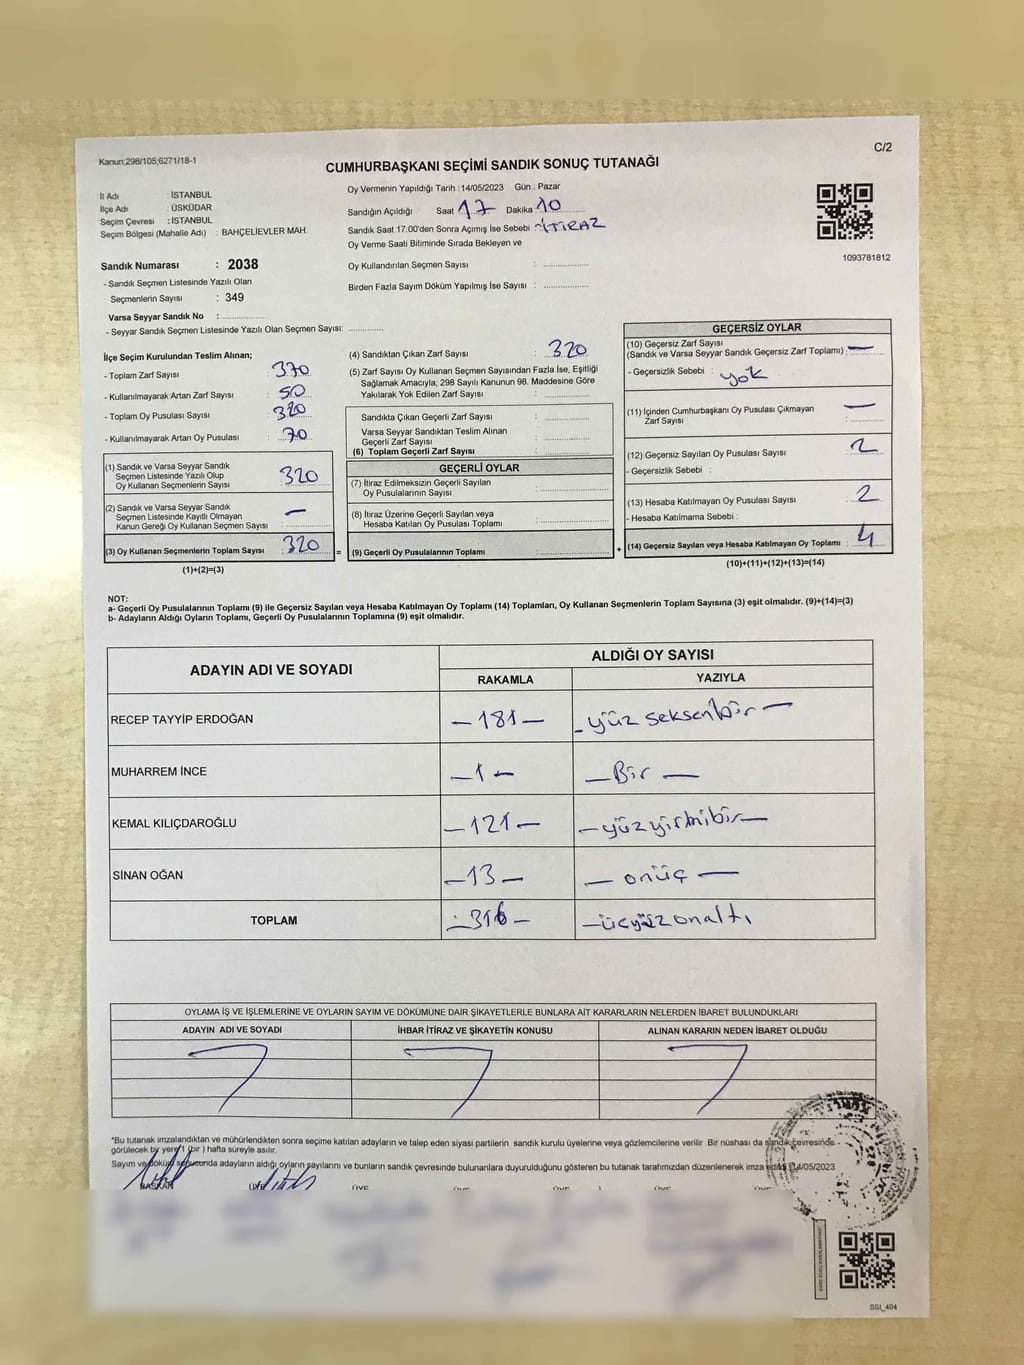 Kanun;298/105;6271/18-1
C/2
CUMHURBAŞKANI SEÇİMİ SANDIK SONUÇ TUTANAĞI
İl Adı : İSTANBUL
İlçe Adı : ÜSKÜDAR
Seçim Çevresi : İSTANBUL
Seçim Bölgesi (Mahalle Adı) : BAHÇELİEVLER MAH.
Sandık Numarası : 2038
- Sandık Seçmen Listesinde Yazılı Olan
Seçmenlerin Sayısı : 349
Varsa Seyyar Sandık No :
- Seyyar Sandık Seçmen Listesinde Yazılı Olan Seçmen Sayısı:
Oy Vermenin Yapıldığı Tarih : 14/05/2023 Gün : Pazar
Sandığın Açıldığı Saat 17 Dakika 10
Sandık Saat 17:00'den Sonra Açımış İse Sebebi : İTİRAZ
Oy Verme Saati Bitiminde Sırada Bekleyen ve
Oy Kullandırılan Seçmen Sayısı :
Birden Fazla Sayım Döküm Yapılmış İse Sayısı :
1093781812
İlçe Seçim Kurulundan Teslim Alınan;
- Toplam Zarf Sayısı : 370
- Kullanılmayarak Artan Zarf Sayısı : 50
- Toplam Oy Pusulası Sayısı
- Kullanılmayarak Artan Oy Pusulası : 70
(1) Sandık ve Varsa Seyyar Sandık
Seçmen Listesinde Yazılı Olup
Oy Kullanan Seçmenlerin Sayısı : 320
(2) Sandık ve Varsa Seyyar Sandık
Seçmen Listesinde Kayıtlı Olmayan
Kanun Gereği Oy Kullanan Seçmen Sayısı : —
(3) Oy Kullanan Seçmenlerin Toplam Sayısı : 320 =
(1)+(2)=(3)
(4) Sandıktan Çıkan Zarf Sayısı : 320
(5) Zarf Sayısı Oy Kullanan Seçmen Sayısından Fazla İse, Eşitliği
Sağlamak Amacıyla; 298 Sayılı Kanunun 98. Maddesine Göre
Yakılarak Yok Edilen Zarf Sayısı :
Sandıkta Çıkan Geçerli Zarf Sayısı :
Varsa Seyyar Sandıktan Teslim Alınan
Geçerli Zarf Sayısı :
(6) Toplam Geçerli Zarf Sayısı :
GEÇERLİ OYLAR
(7) İtiraz Edilmeksizin Geçerli Sayılan
Oy Pusulalarının Sayısı :
(8) İtiraz Üzerine Geçerli Sayılan veya
Hesaba Katılan Oy Pusulası Toplamı :
(9) Geçerli Oy Pusulalarının Toplamı : +
GEÇERSİZ OYLAR
(10) Geçersiz Zarf Sayısı
(Sandık ve Varsa Seyyar Sandık Geçersiz Zarf Toplamı) : —
- Geçersizlik Sebebi : yok
(11) İçinden Cumhurbaşkanı Oy Pusulası Çıkmayan
Zarf Sayısı : —
(12) Geçersiz Sayılan Oy Pusulası Sayısı : 2
- Geçersizlik Sebebi :
(13) Hesaba Katılmayan Oy Pusulası Sayısı : 2
- Hesaba Katılmama Sebebi :
(14) Geçersiz Sayılan veya Hesaba Katılmayan Oy Toplamı : 4
(10)+(11)+(12)+(13)=(14)
NOT:
a- Geçerli Oy Pusulalarının Toplamı (9) ile Geçersiz Sayılan veya Hesaba Katılmayan Oy Toplamı (14) Toplamları, Oy Kullanan Seçmenlerin Toplam Sayısına (3) eşit olmalıdır. (9)+(14)=(3)
b- Adayların Aldığı Oyların Toplamı, Geçerli Oy Pusulalarının Toplamına (9) eşit olmalıdır.
ADAYIN ADI VE SOYADI ALDIĞI OY SAYISI
RAKAMLA YAZIYLA
RECEP TAYYİP ERDOĞAN —181— —yüz seksenbir—
MUHARREM İNCE —1— —Bir—
KEMAL KILIÇDAROĞLU —121— —yüzyirmibir—
SİNAN OĞAN —13— —onüç—
TOPLAM —316— —üçyüzonaltı
OYLAMA İŞ VE İŞLEMLERİNE VE OYLARIN SAYIM VE DÖKÜMÜNE DAİR ŞİKAYETLERLE BUNLARA AİT KARARLARIN NELERDEN İBARET BULUNDUKLARI
ADAYIN ADI VE SOYADI İHBAR İTİRAZ VE ŞİKAYETİN KONUSU ALINAN KARARIN NEDEN İBARET OLDUĞU
*Bu tutanak imzalandıktan ve mühürlendikten sonra seçime katılan adayların ve talep eden siyasi partilerin sandık kurulu üyelerine veya gözlemcilerine verilir .Bir nüshası da sandık çevresinde
görülecek bir yere 1 (bir ) hafta süreyle asılır.
Sayım ve döküm sonucunda adayların aldığı oyların sayılarını ve bunların sandık çevresinde bulunanlara duyurulduğunu gösteren bu tutanak tarafımızdan düzenlenerek imza edildi. 14/05/2023
BAŞKAN ÜYE ÜYE ÜYE ÜYE ÜYE ÜYE
SSI_404